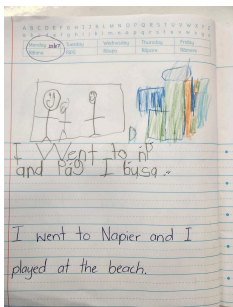 A B C D E F G H I J K L M N O P Q R S T U V W X Y Z
Monday Tuesday Wednesday Thursday Friday
I Went to nP
and Pag I busa.
I went to Napier and I
played at the beach.